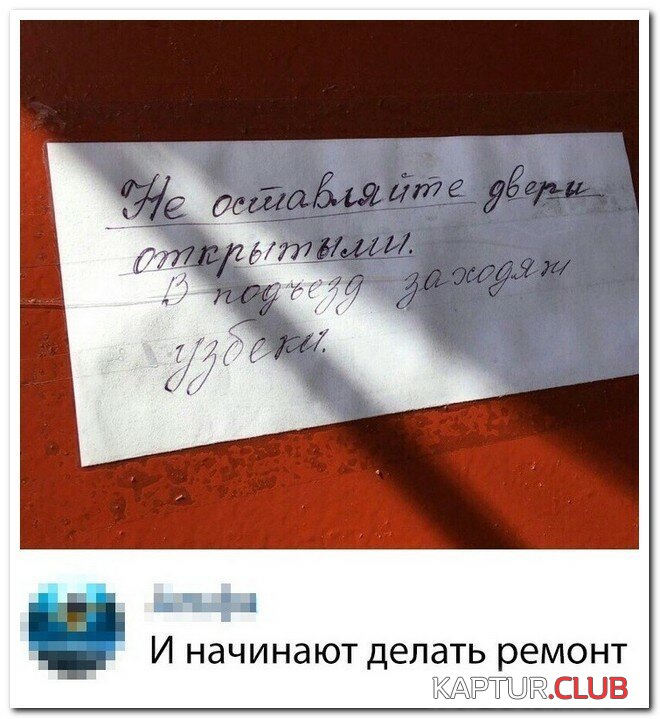 Не оставляйте двери
открытыми.
В подъезд заходят
узбеки.
И начинают делать ремонт
KAPTUR.CLUB